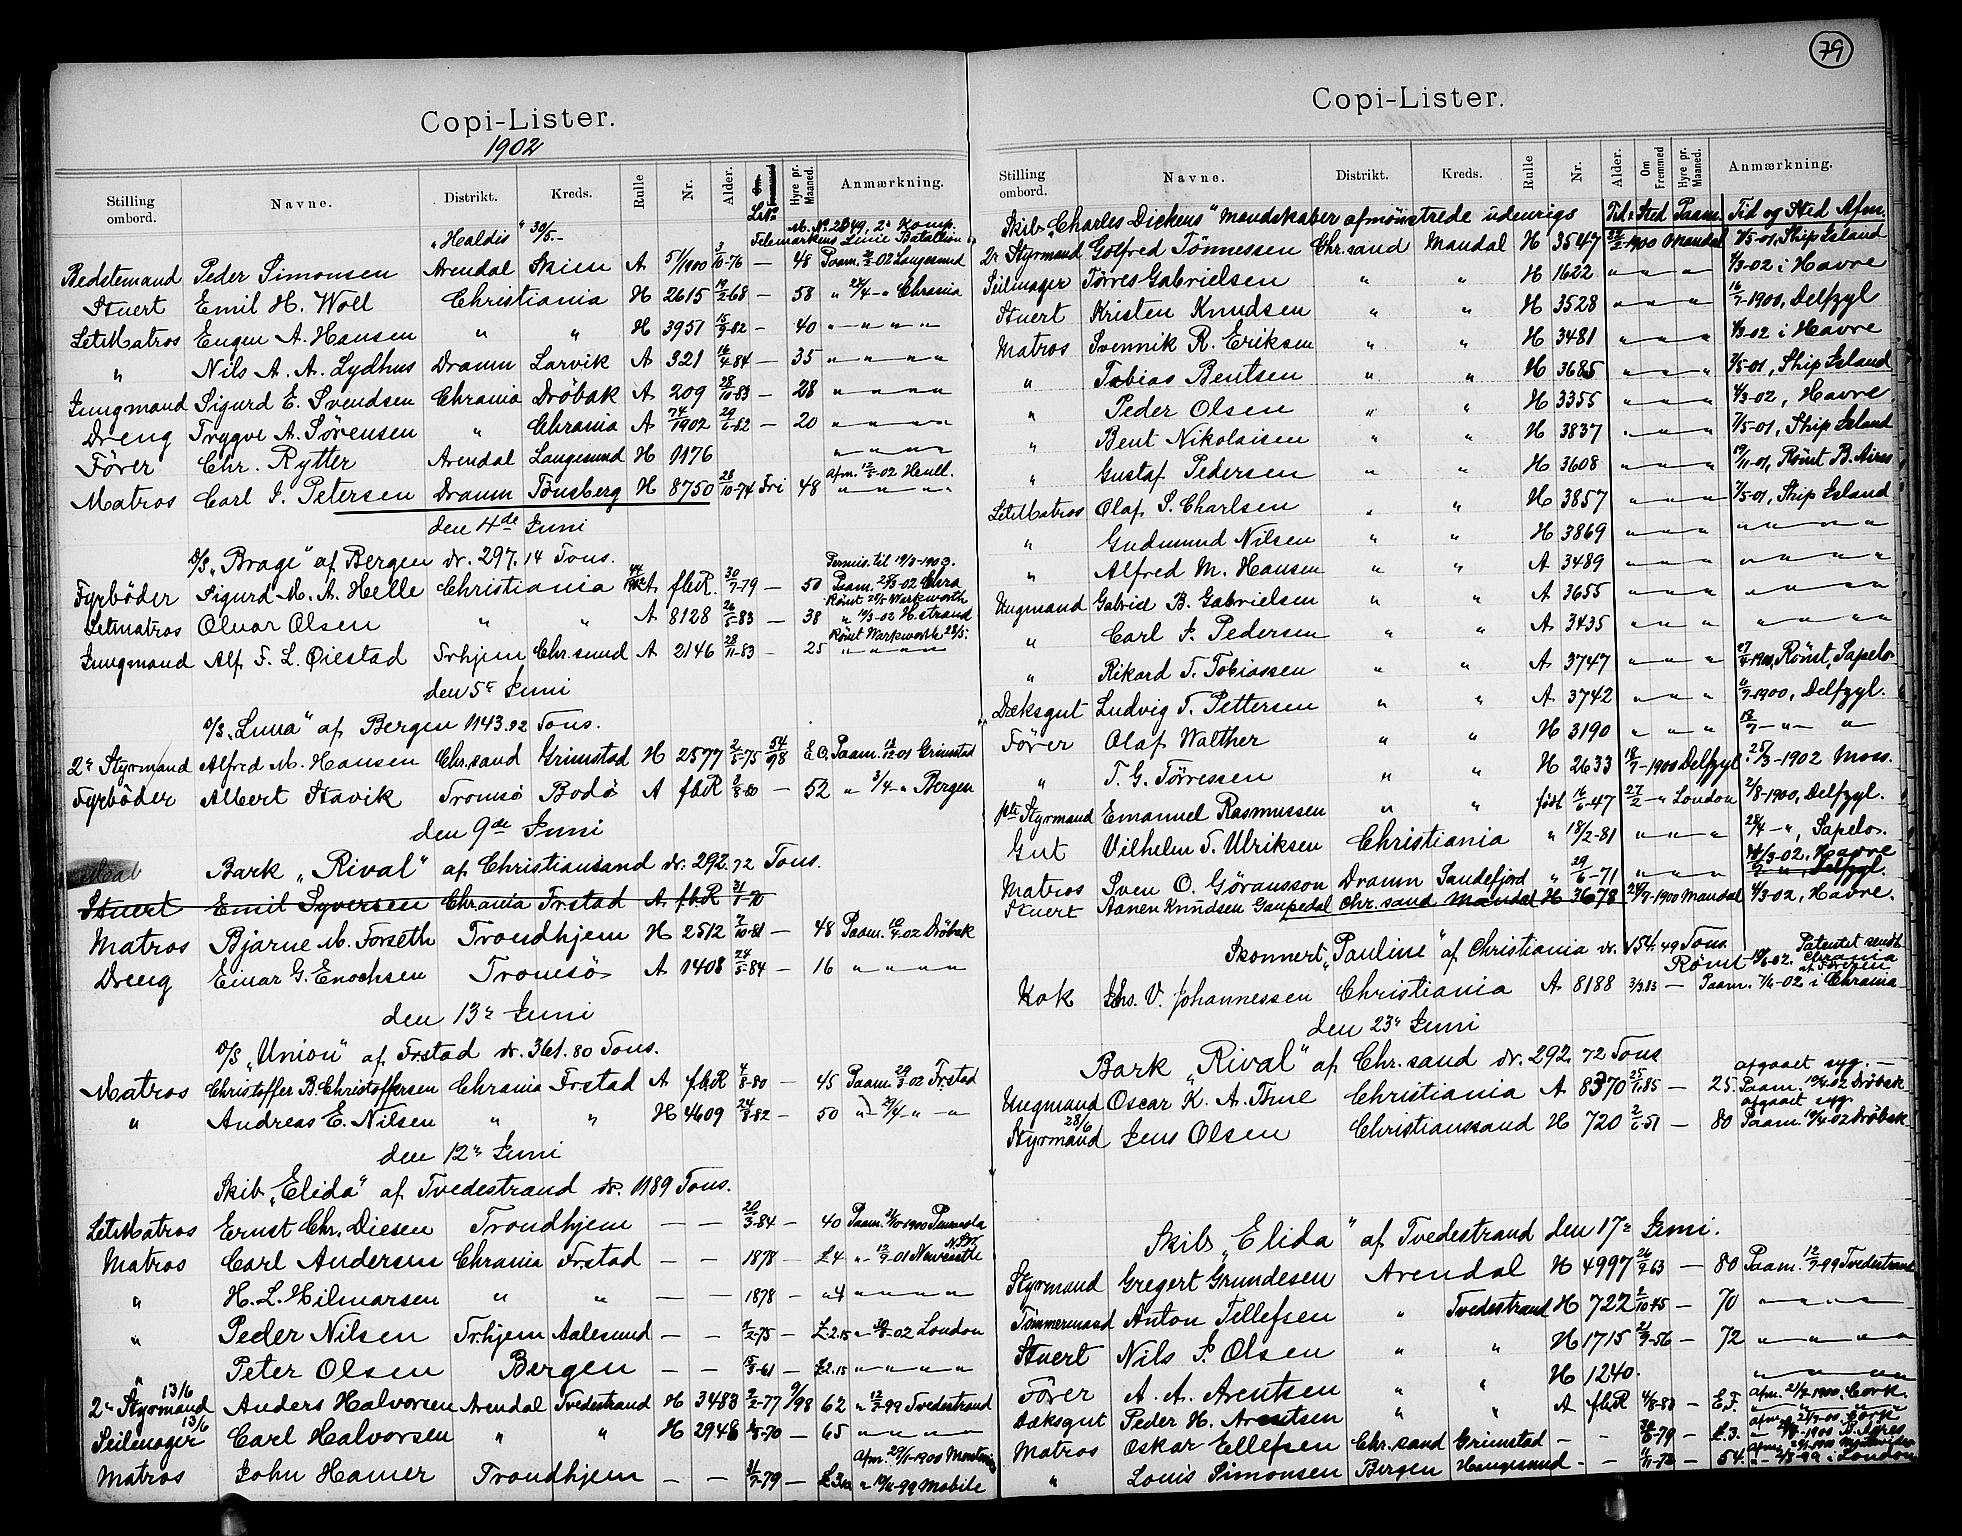 79
Copi-Lister.
1902
Stilling ombord. Navne. Distrikt. Kreds. Rulle Nr. Alder. Hyre pr. Maaned. Anmærkning.
"Haldis" 30/5.- M. No 2849, 2n Komp. Telemarkens Linie Batallion
Bedstemand Peder Simonsen Arendal Skien A 51/1900 3/10-76 — 48 Paam. Langesund
Stuert Emil H. Woll Christiania H 2615 19/2-68 — 58 " 24/4 - " Chrania
LetMatros Eugen A. Hansen " " H 3951 15/9-82 - 40 " " " "
" Nils A. A. Lydhus Dramn Larvik A 321 16/4-84 - 35 " " " "
Jungmand Sigurd E. Svendsen Chrania Dröbak A 209 28/10-83 - 28 " " " "
Dreng Trygve A. Sörensen " Chrania A 74/1902 29/6-82 - 20 " " " "
Förer Chr. Rytter Arendal Langesund H 1176 " " " "
Matros Carl J. Petersen Dramn Tönsberg H 8750 28/10-74 Fri 48 Afm. 12/5-02 Heull.
den 4de Juni
D/S "Brage" af Bergen dr. 297.14 Tons.
Permis. til 19/3-1903.
Fyrböder Sigurd M. A. Helle Christiania A fbR. 30/7-79 — 50 Paam. 21/3-02 Chra
Rönt 28/5 Warkworth
Letmatros Olvar Olsen " " A 8128 26/5-83 — 38 " 19/3-02 H.strand
Rönt Warkworth 28/5.
Jungmand Alf F. L. Öiestad Trhjem Chr.sund A 2146 28/11-83 - 25 " " " "
den 5t Juni
D/S "Luna" af Bergen 1143.92 Tons.
2n Styrmand Alfred M. Hansen Chr.sand Grimstad H 2577 2/5-75 54/98 E.O. Paam. 12/12 01 Grimstad
Fyrböder Albert Stavik Tromsö Bodö A fbR 2/8-80 — 52 " 3/4 - " Bergen
den 9de Juni
Bark "Rival" af Christiansand dr. 292.72 Tons.
Stuert Emil Syversen Chrania Frstad A. fbR 31/1-70
Matros Bjarne M. Forseth Trondhjem H 2512 2/10-81 - 48 Paam. 10/4-02 Dröbak
Dreng Einar G. Enochsen Tromsö A 1408 24/5-84 - 16 " " " "
den 13n Juni
D/S "Union" af Frstad dr. 361.80 Tons.
Matros Christoffer B. Christoffersen Chrania Frstad A fbR 4/8-80 — 45 Paam. 29/3-02 Frstad
" Andreas E. Nilsen " " H 4609 24/8-82 - 50 " 29/4 " "
den 12n Juni
Skib "Elida" af Tvedestrand dr. 1189 Tons.
LetMatros Ernst Chr. Diesen Trondhjem — — 20/3-84 - 40 Paam.
Matros Carl Andersen Chrania Frstad - - 1878 - £4 " 12/9-01 Newcastle
" H. L. Hilmarsen " " — - 1878 - "4 " " " "
" Peder Nilsen Tr.hjem Aalesund — - 2/2-75 — £2.15 " -02 London
" Peter Olsen Bergen — - 15/3-61 — £2.15 " " " "
2n Styrmand 13/6 Anders Halvorsen Arendal Tvedestrand H 3483 2/2-77 9/98 62 " 12/7-99 Tvedestrand
Seilmager 13/6 Carl Halvorsen " " H 2948 2/5-70 — 65 " " " "
Afm. 29/1-1900
Matros John Hamer Trondhjem - - 31/7-79 - £3 " -99 Mobile
Copi-Lister.
Stilling ombord. Navne. Distrikt. Kreds. Rulle Nr. Alder. Om Fremmed Hyre pr. Maaned. Anmærkning.
Skib "Charles Dickens" Mandskaber afmönstrede udenrigs Tid & Sted Paam. Tid og Sted Afm.
2n Styrmand Golfred Tönnessen Chr.sand Mandal H 3547 -1900 Mandal 7/5-01, Ship Island
Seilmager Törres Gabrielsen " " H 1622 " " " 4/3-02 i Havre
Stuert Kristen Knudsen " " H 3528 " " " 16/7-1900, Delfzyl
Matros Svennik R. Eriksen " " H 3481 " " " 4/3-02 i Havre
" Tobias Bentsen " " H 3685 " " " 7/5-01, Ship Island
" Peder Olsen " " H 3355 " " " 4/3-02, Havre
" Bent Nikolaisen " " H 3837 " " " 7/5-01, Ship Island
" Gustaf Pedersen " " H 3608 " " " 19/11-01, Rönt B. Aires
LetMatros Olaf S. Charlsen " " H 3857 " " " 7/5-01, Ship Island
" Gudmund Nilsen " " H 3869 " " " " " " "
" Alfred M. Hansen " " A 3489 " " " " " " "
Ungmand Gabriel B. Gabrielsen " " A 3655 " " " " " " "
" Carl J. Pedersen " " A 3435 " " " " " " "
" Rikard T. Tobiassen " " A 3747 " " " 27/4-1900, Rönt, Sapelo
Dæksgut Ludvig T. Pettersen " " A 3742 " " " -1900, Delfzyl.
Förer Olaf Walther " " H 3190 " " " 18/7 - " - "
" T. G. Törressen " " H 2633 18/7-1900 Delfzyl. 25/3-1902 Moss.
1ste Styrmand Emanuel Rasmussen " " född 16/6-47 27/2 - " London 2/8-1900, Delfzyl.
Gut Vilhelm T. Ulriksen Christiania " 18/2-81 " " " 28/4 - ", Sapelo.
Matros Sven O. Göransson Dramn Sandefjord " 29/6-71 " " " 4/3-02, Havre
Delfzyl.
Stuert Aanen Knudsen Gaupedal Chr.sand Mandal H 3678 24/7-1900 Mandal 4/3-02, Havre.
Skonnert "Pauline" af Christiania dr. 154.49 Tons.
Rönt 10/6-02. Patentet sendt Chrania af Föreren
Kok Johs. V. Johannessen Christiania A 8188 3/3 83 — Paam. 7/4-02 i Chrania
den 23n Juni
Bark "Rival" af Chr.sand dr. 292.72 Tons
afgaaet syg. —
Ungmand Oscar K. A. Thue Christiania A 8370 25/1-85 — 25 Paam. 10/4-02 Dröbak
afgaaet syg.
Styrmand 28/6 Jens Olsen Christianssand H 720 2/6-51 — 80 Paam. 10/4-02 Dröbak
Skib "Elida" af Tvedestrand den 17n Juni.
Styrmand Gregert Grundesen Arendal H 4997 26/9-63 — 80 Paam. 12/7-99 Tvedestrand
Tömmermand Anton Tellefsen " Tvedestrand H 722 2/10-45 - 70 " " " "
Stuert Nils J. Olsen " " H 1715 21/9-56 — 72 " " " "
Förer A. A. Arentsen " " H 1240. " " " "
Dæksgut Peder H. Arentsen " " A fbR 4/8-83 — E.F. Afm. -1900, Cork.
Matros Oskar Ellefsen Chr.sand Grimstad - - -79 — £3. -1900 B. Ayres
" Louis Simonsen Bergen Haugesund - - -72 — 54. -99 i London